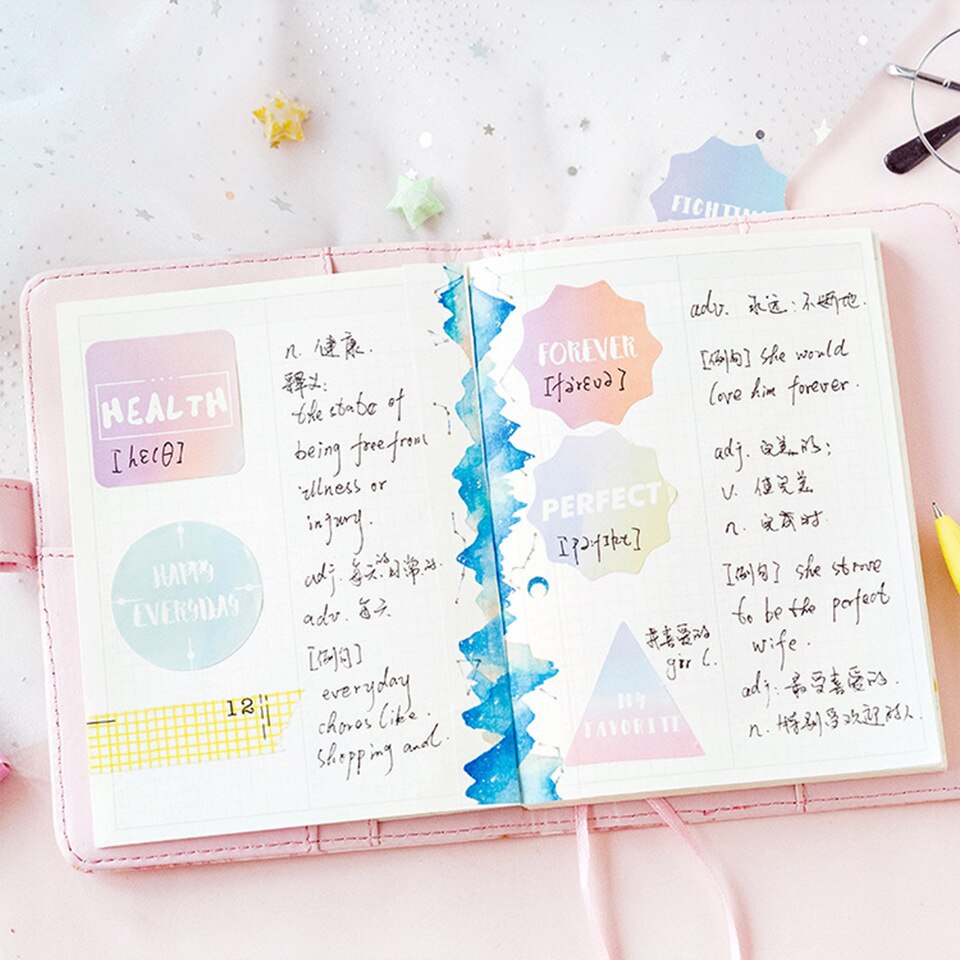 FIGHTING
HEALTH
[helθ]
n. 健康.
释义:
the state of
being free from
illness or
injury.
HAPPY
EVERYDAY
adj. 每天的日常的.
adv. 每天
[例句]
everyday
chores like
shopping and
12
FOREVER
[fərevə]
adv. 永远:不断地.
[例句] she would
love him forever.
PERFECT
adj. 完美的;
v. 使完美
n. 完成时
[例句] she strove
to be the perfect
wife.
最喜爱的
girl.
MY
FAVORITE
adj: 最受喜爱的.
n. 特别受欢迎的人.